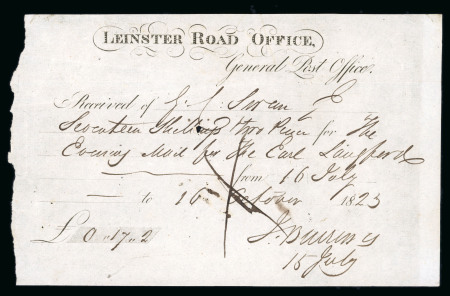 LEINSTER ROAD OFFICE,
General Post Office.
Received of G. J. Swan
Seventeen Shillings two Pence for The
Evening Mail for The Earl Langford
from 16 July
to 16 October 1823
£0 " 17 " 2
15 July